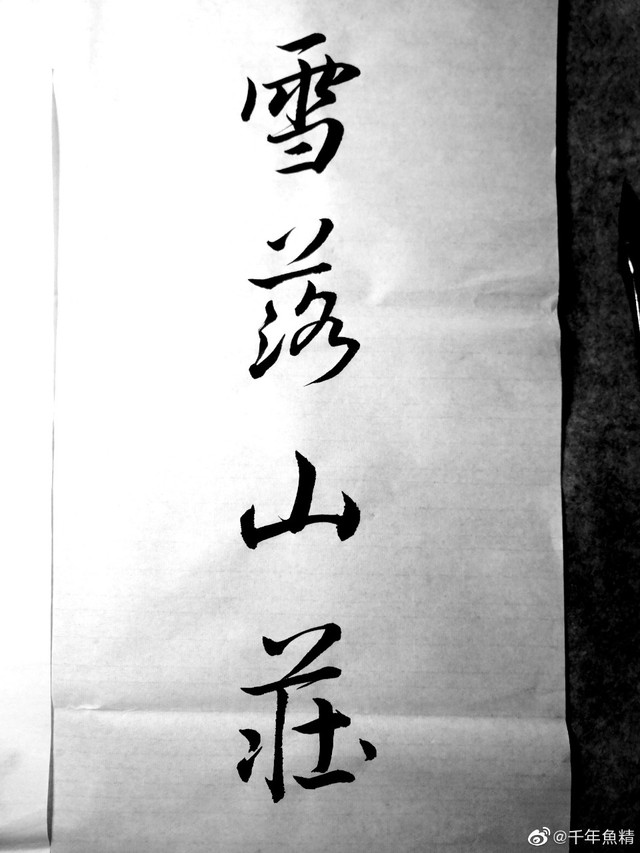 雪落山莊
@千年魚精